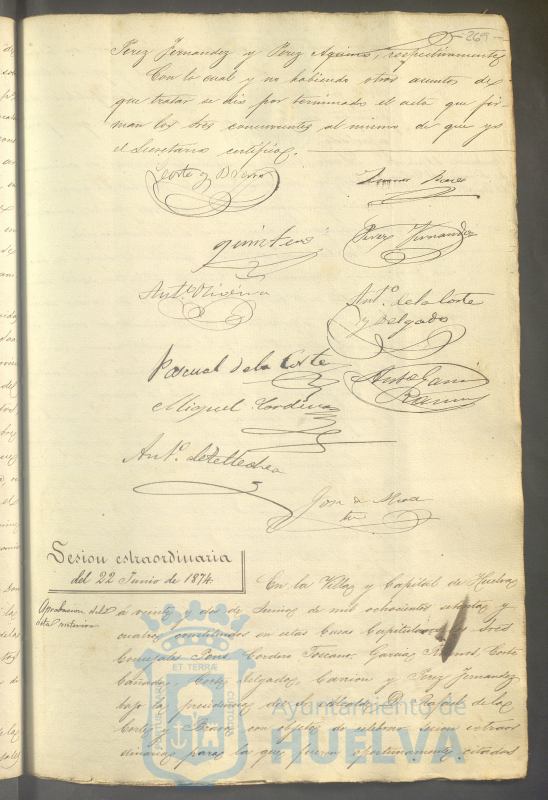 269
Perez Fernandez y Perez Aquino, respectivamente
Con lo cual y no habiendo otros asuntos de
que tratar se dio por terminado el acta que fir-
man los Sres concurrentes al mismo de que yo
el Secretario certifico.
Corte y Bravo
Perez Fernandez
Quintero
Antº Olivera
Antº de la Corte
y Delgado
Pascual de la Corte
Antº Garcia
Ramos
Miguel Cordero
Antº de Tellechea
Sesion estraordinaria
del 22 Junio de 1874.
En la Villa y Capital de Huelva
Aprobacion del
acta anterior
á veinte y dos de Junio de mil ochocientos setenta y
cuatro, constituidos en estas Casas Capitulares los Sres
Concejales Cordero Toscano, Garcia Ramos, Corte
Cañada, Corte Delgado, Carrion y Perez Fernandez
bajo la presidencia del Alcalde D. Rafael de la
Corte y Bravo con objeto de celebrar sesion estraor
dinaria para la que fueron oportunamente citados
ET TERRÆ
PORTUS MARIS
CUSTODIA
Ayuntamiento de
HUELVA